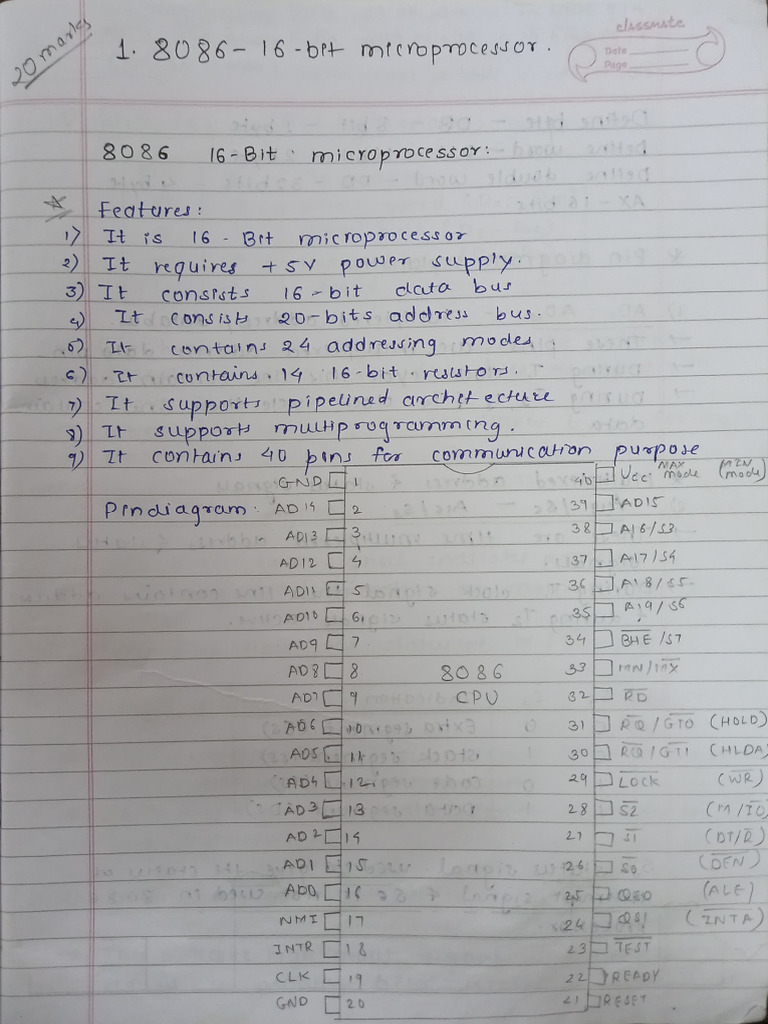 20 marks
classmate
Date
Page
1. 8086 - 16-bit microprocessor.
8086 16-Bit microprocessor:
Features:
1) It is 16-Bit microprocessor
2) It requires +5V power supply.
3) It consists 16-bit data bus
4) It consists 20-bits address bus.
5) It contains 24 addressing modes.
6) It contains 14 16-bit resistors.
7) It supports pipelined archetecture
8) It supports multiprogramming.
9) It contains 40 pins for communication purpose
Pindiagram:
GND 1 40 Vcc MAX mode (MIN mode)
AD14 2 39 AD15
AD13 3 38 A16/S3
AD12 4 37 A17/S4
AD11 5 36 A18/S5
AD10 6 35 A19/S6
AD9 7 34 B̅H̅E̅/S7
AD8 8 8086 33 MN/M̅X̅
AD7 9 CPU 32 R̅D̅
AD6 10 31 R̅Q̅/G̅T̅0̅ (HOLD)
AD5 11 30 R̅Q̅/G̅T̅1̅ (HLDA)
AD4 12 29 L̅o̅c̅k̅ (W̅R̅)
AD3 13 28 S̅2̅ (M/I̅O̅)
AD2 14 27 S̅1̅ (DT/R̅)
AD1 15 26 S̅0̅ (D̅E̅N̅)
AD0 16 25 QS0 (ALE)
NMI 17 24 QS1 (I̅N̅T̅A̅)
INTR 18 23 T̅E̅S̅T̅
CLK 19 22 READY
GND 20 21 RESET